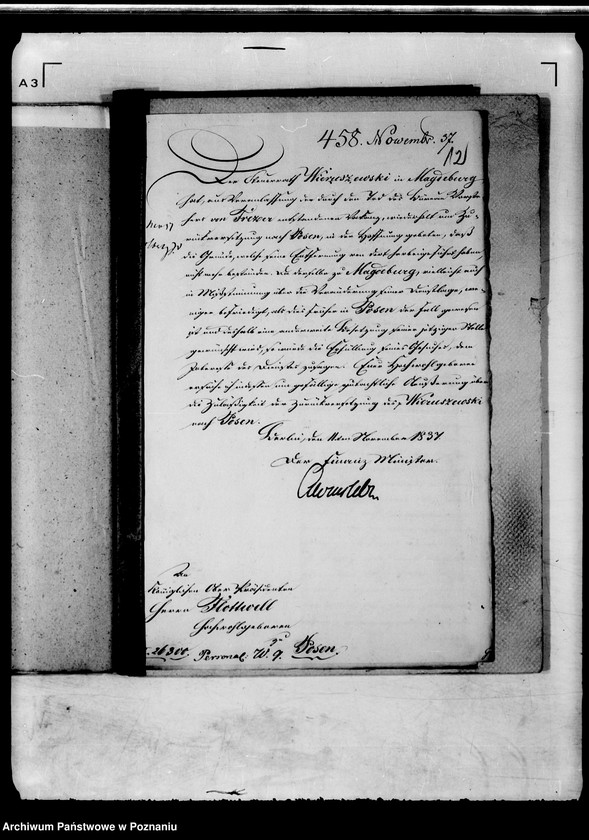 A 3
458. Novembr. 37.
121
Der Steuerrath Wieruszewski in Magdeburg
hat, aus Veranlassung der durch den Tod des
von Trezer entstandenen Vakanz, wiederholt um Zu-
rückversetzung nach Posen, in der Hoffnung gebeten, daß
die Gründe, welche seine Entfernung von dort herbeigeführt haben,
nicht mehr bestünden. Da derselbe zu Magdeburg, vielleicht auch
in Mißstimmung über die Veränderung seiner Dienstlage, we-
niger befriedigt, als dies früher in Posen der Fall gewesen
ist und deshalb eine anderweite Besetzung seiner jetzigen Stelle
gewünscht wird, so würde die Erfüllung seines Gesuches, dem
Interesse des Dienstes zusagen. Euer Hochwohlgeboren
ersuche ich indessen um gefällige gutachtliche Äußerung über
die Zulässigkeit der Zurückversetzung des Wieruszewski
nach Posen.
Berlin, den November 1837
Der Finanz Minister.
An
Königlichen Ober Präsidenten
Herrn Flottwell
Hochwohlgeboren
Posen.
26300. Personal.
Archiwum Państwowe w Poznaniu